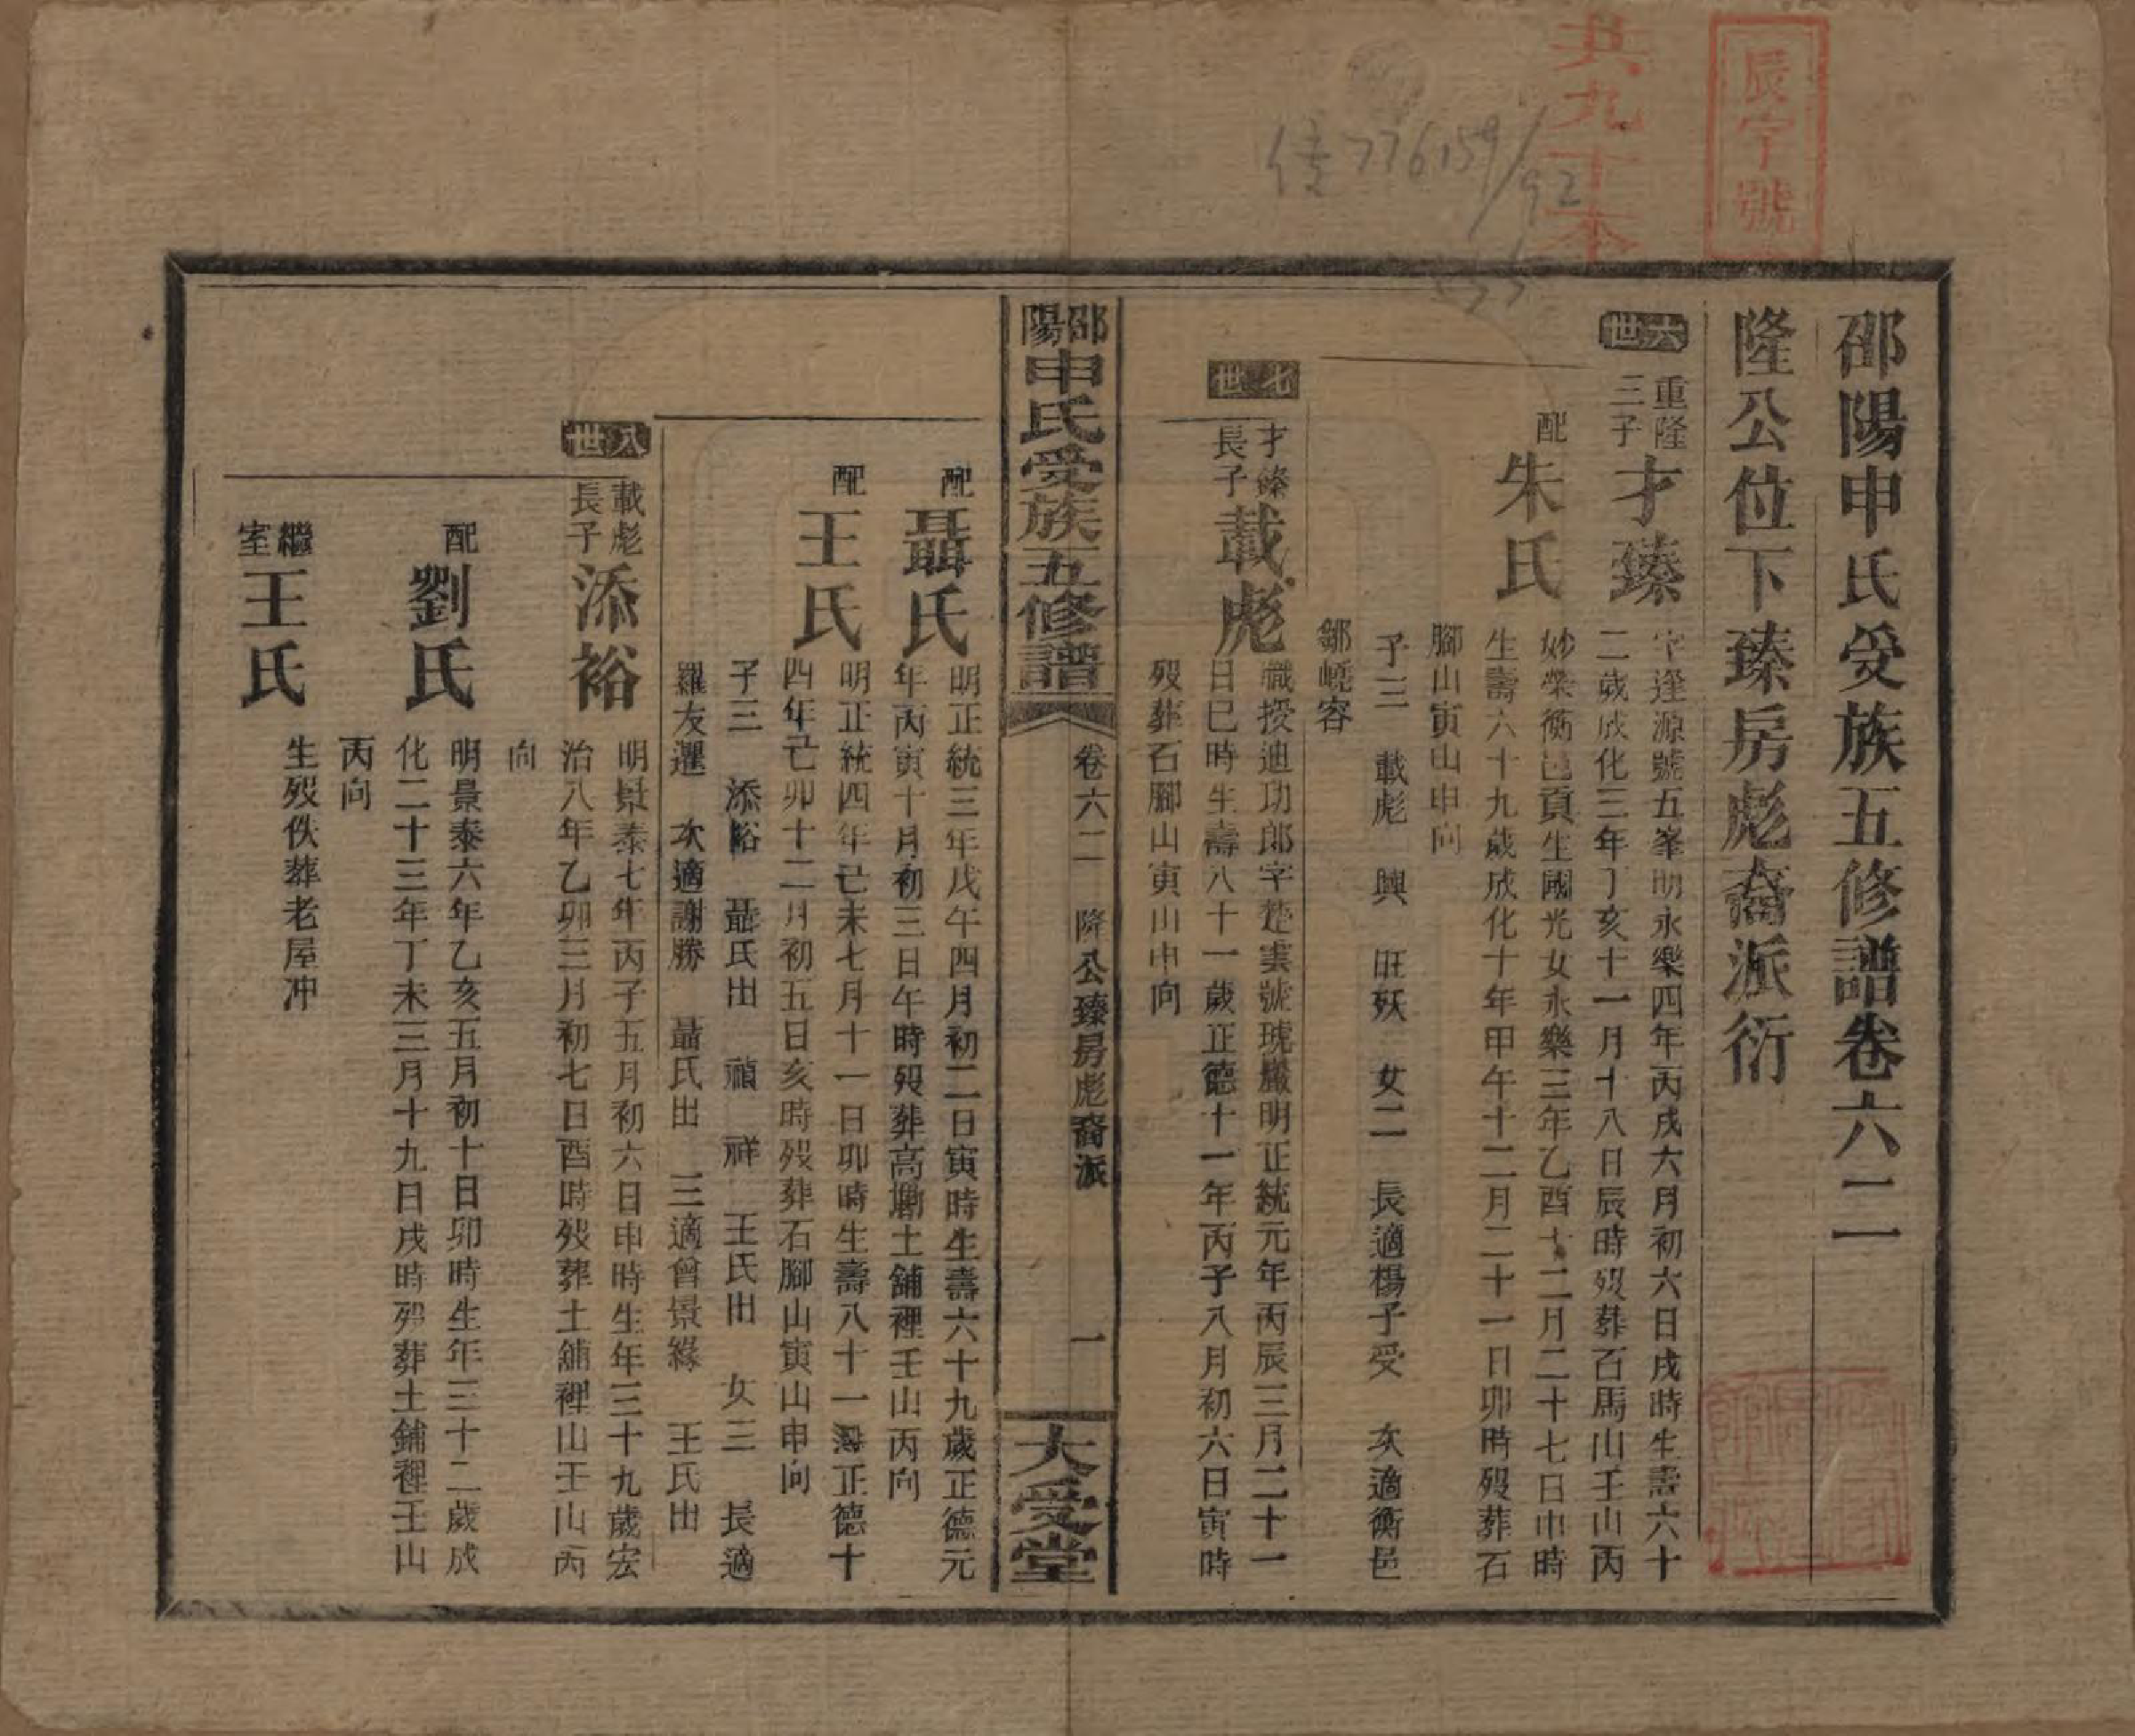 辰字號
共九十本
信776159/92
邵陽申氏受族五修譜卷六二
隆公位下臻房彪裔派衍
六世
重隆三子
才臻
字逢源號五峯明永樂四年丙戌六月初六日戌時生壽六十
二歲成化三年丁亥十一月十八日辰時歿葬石馬山壬山丙
配朱氏
妙榮衡邑貢生國光女永樂三年乙酉十二月二十七日申時
生壽六十九歲成化十年甲午十二月二十一日卯時歿葬石
腳山寅山申向
子三 載彪 興 旺殀 女二 長適楊子受 次適衡邑
鄒嶢容
七世
才臻長子
載彪
職授迪功郎字楚雲號琥巖明正統元年丙辰三月二十一
日巳時生壽八十一歲正德十一年丙子八月初六日寅時
歿葬石腳山寅山申向
邵陽申氏受族五修譜
卷六二 隆公臻房彪裔派
一
大受堂
配聶氏
明正統三年戊午四月初二日寅時生壽六十九歲正德元
年丙寅十月初三日午時歿葬高塘土鋪裡壬山丙向
配王氏
明正統四年己未七月十一日卯時生壽八十一歲正德十
四年己卯十二月初五日亥時歿葬石腳山寅山申向
子三 添裕 聶氏出 禎 祥 王氏出 女三 長適
羅友還 次適謝勝 聶氏出 三適曾景緣 王氏出
八世
載彪長子
添裕
明景泰七年丙子五月初六日申時生年三十九歲宏
治八年乙卯三月初七日酉時歿葬土鋪裡山壬山丙
向
配劉氏
明景泰六年乙亥五月初十日卯時生年三十二歲成
化二十三年丁未三月十九日戌時歿葬土鋪裡壬山
丙向
繼室王氏
生歿佚葬老屋冲